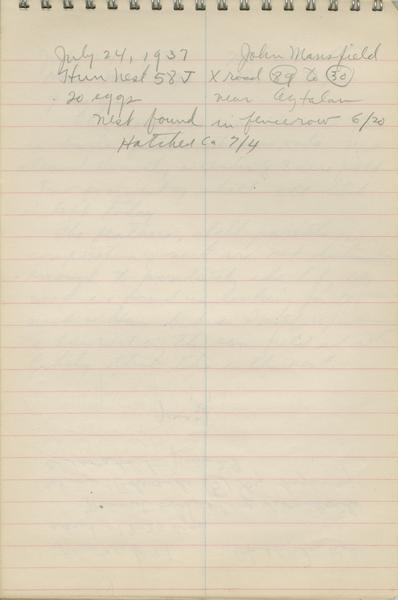 July 24, 1937 John Mansfield
Hun Nest 58 J X road 89 to 30
20 eggs near Aztalan
Nest found in fencerow 6/20
Hatched Ca 7/4